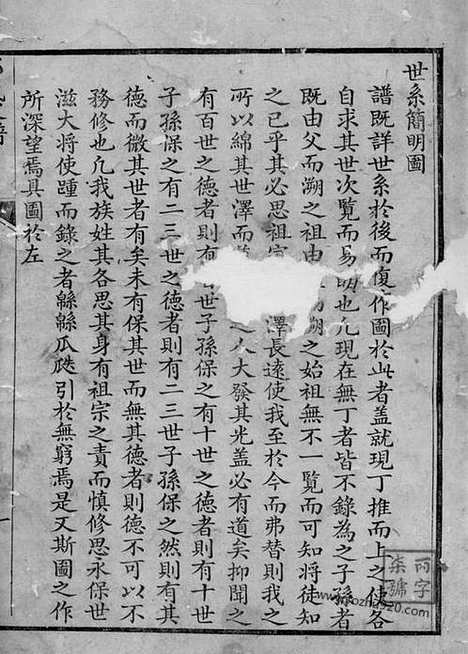 世系簡明圖
譜既詳世系於後而復作圖於此者蓋就現丁推而上之使各
自求其世次覽而易明也凡現在無丁者皆不錄為之子孫者
既由父而溯之祖由 溯之始祖無不一覽而可知將徒知
之已乎其必思祖宗 澤長遠使我至於今而弗替則我之
所以綿其世澤而 之人大發其光蓋必有道矣抑聞之
有百世之德者則有 世子孫保之有十世之德者則有十世
子孫保之有二三世之德者則有二三世子孫保之然則有其
德而微其世者有矣未有保其世而無其德者則德不可以不
務修也凢我族姓其各思其身有祖宗之責而慎修思永保世
滋大將使踵而錄之者緜緜瓜瓞引於無窮焉是又斯圖之作
所深望焉具圖於左
丙字
柒號